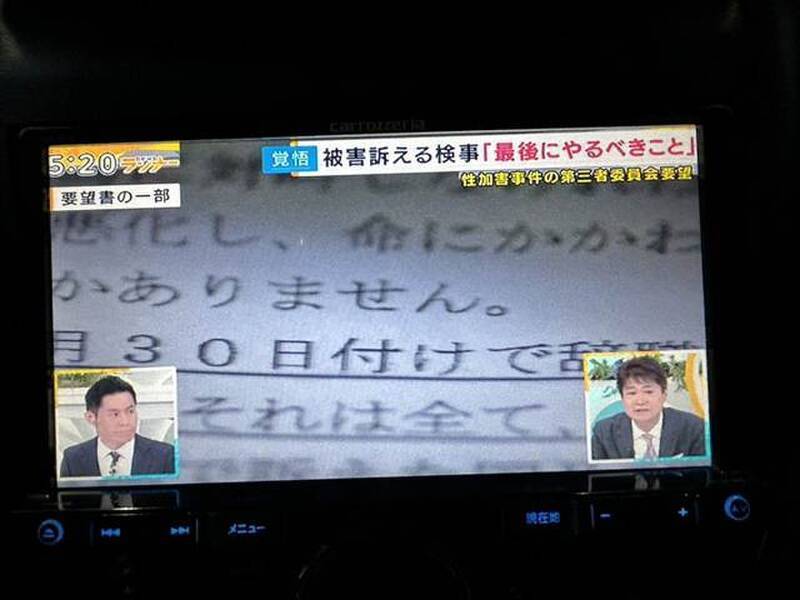 carrozzeria
5:20
ランナー
覚悟
被害訴える検事「最後にやるべきこと」
性加害事件の第三者委員会要望
要望書の一部
悪化し、命にかかわ
かありません。
月30日付けで辞職
それは全て、
メニュー
現在地
－
+
AV